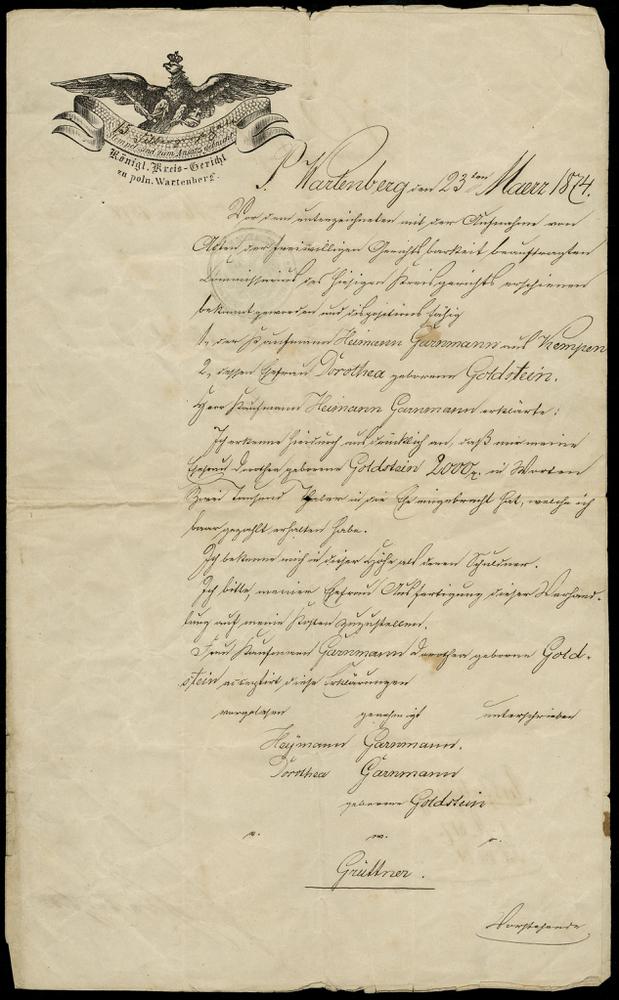 15 Silbergr
Stempel sind zum Ansatz gebracht
Königl. Kreis-Gericht
zu poln. Wartenberg.
P. Wartenberg den 23ten Maerz 1874.
Vor dem unterzeichneten mit der Aufnahme von
Akten der freiwilligen Gerichtsbarkeit beauftragten
Commissarius des hiesigen Kreisgerichts erschienen
bekannt geworden und dispositionsfähig
1, der Kaufmann Heimann Garnmann aus Kempen
2, dessen Ehefrau Dorothea geborene Goldstein.
Herr Kaufmann Heimann Garnmann erklärte:
Ich erkenne hierdurch ausdrücklich an, daß mir meine
Ehefrau Dorothea geborene Goldstein 2000 in Worten
Zwei Tausend Thaler in die Ehe eingebracht hat, welche ich
baar gezahlt erhalten habe.
Ich bekenne mich in dieser Höhe als deren Schuldner.
Ich bitte meiner Ehefrau Ausfertigung dieser Verhand-
lung auf meine Kosten zuzustellen.
Frau Kaufmann Garnmann Dorothea geborne Gold-
stein acceptirt diese Erklärungen
vorgelesen genehmigt unterschrieben
Heymann Garnmann.
Dorothea Garnmann
geborene Goldstein
a. w. s.
Grüttner.
Vorstehende